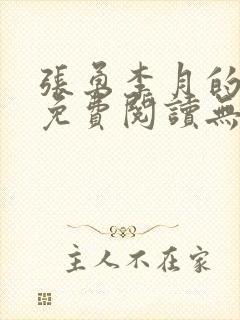 張勇李月的
免費閱讀無
主人不在家